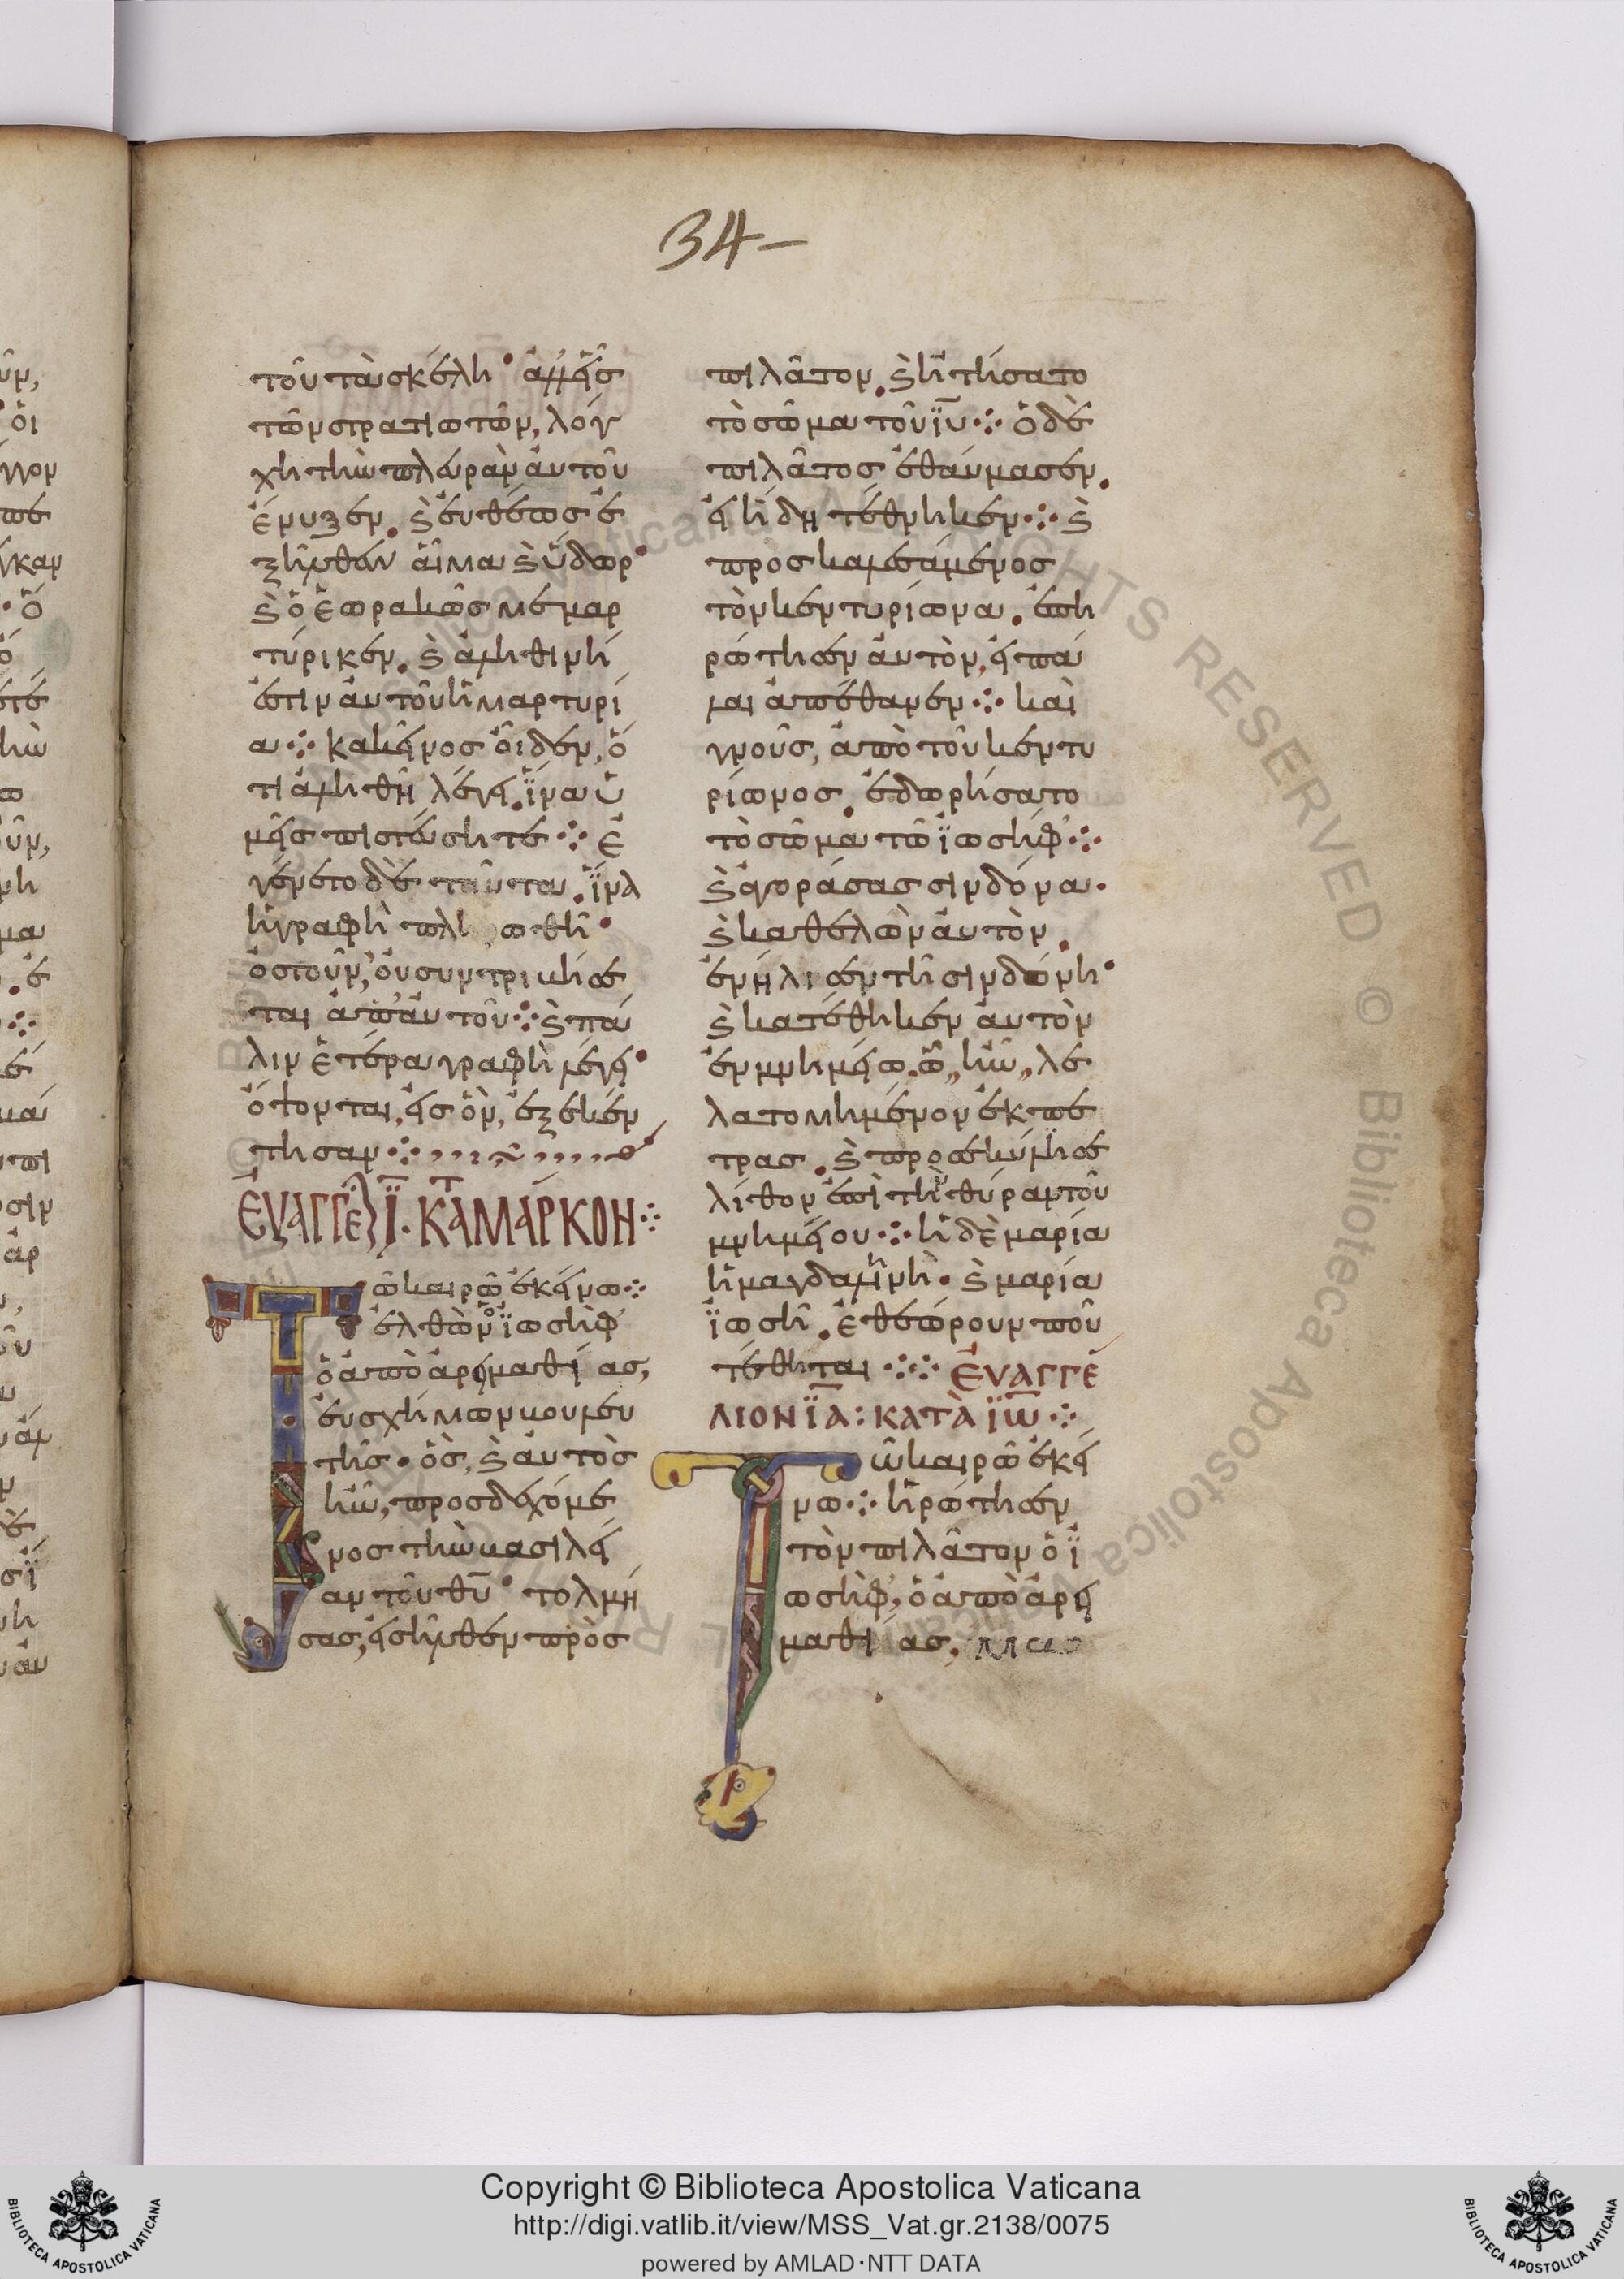 34-
τοῦ τὰ σκέλη· ἀλλ' εἷς
τῶν στρατιωτῶν, λόγ
χη τὴν πλευρὰν αὐτοῦ
ἔνυξεν. ϗ ἐυθέως ἐ
ξῆλθεν αἷμα ϗ ὕδωρ·
ϗ ὁ ἑωρακὼς μεμαρ
τύρικεν. ϗ ἀληθινὴ
ἐστιν αὐτοῦ ἡ μαρτυρί
α ⁘ κακεῖνος οἶδεν, ὅ
τι ἀληθῆ λέγει. ἵνα ὑ
μεῖς πιστεύσητε ⁘ Ἐ
γένετο δὲ ταῦτα. ἵνα
ἡ γραφὴ πλη ωθῆ·
ὀστοῦν, οὐ συντριβήσε
ται ἀπ' αὐτοῦ ⁘ ϗ πά
λιν ἑτέρα γραφὴ λέγει·
ὄψονται, εἰς ὃν, ἐξεκέν
τησαν ⁘
ΕΥΑΓΓΕΛ Ι· ΚΑΤΑ ΜΑΡΚΟΝ ⁘
Τῶ καιρῶ ἐκείνω ⁘
ἐλθὼν ὁ ἰωσὴφ
ὁ ἀπὸ ἀρειμαθίας,
ἐυσχήμων βουλευ
τὴς· ὃς, ϗ αὐτὸς
ἦν, προσδεχόμε
νος τὴν βασιλεί
αν τοῦ θῦ· τολμή
σας, εἰσῆλθεν πρὸς
πιλᾶτον. ϗ ἠτήσατο
τὸ σῶμα τοῦ ἰῦ ⁘ ὁ δὲ
πιλᾶτος ἐθαύμασεν.
εἰ ἤδη τέθνηκεν ⁘ ϗ
προσκαλεσάμενος
τὸν κεντυρίωνα. ἐπη
ρώτησεν αὐτὸν, εἰ πά
λαι ἀπέθανεν ⁘ καὶ
γνοῦς, ἀπὸ τοῦ κεντυ
ρίωνος. ἐδωρήσατο
τὸ σῶμα τῶ ἰωσήφ ⁘
ϗ ἀγοράσας σινδόνα·
ϗ καθελὼν αὐτὸν.
ἐνήλισεν τῆ σινδώνη·
ϗ κατέθηκεν αὐτὸν
ἐν μνημείω. ὧ ἦν λε
λατομημένον ἐκ πέ
τρας. ϗ προσεκύλισε
λίθον ἐπὶ τὴν θύραν τοῦ
μνημείου ⁘ ἡ δὲ μαρία
ἡ μαγδαληνὴ· ϗ μαρία
ἰωσῆ. ἐθεώρουν ποῦ
τέθηται ⁘ ΕΥΑΓΓΕ
ΛΙΟΝ ΙΑ: ΚΑΤΑ ΙΩ ⁘
Τῶ καιρῶ ἐκεί
νω ⁘ ἠρώτησεν
τὸν πιλᾶτον ὁ ἰ
ωσὴφ, ὁ ἀπὸ ἀρει
μαθίας,
Copyright © Biblioteca Apostolica Vaticana
http://digi.vatlib.it/view/MSS_Vat.gr.2138/0075
powered by AMLAD·NTT DATA
BIBLIOTECA APOSTOLICA VATICANA
BIBLIOTECA APOSTOLICA VATICANA